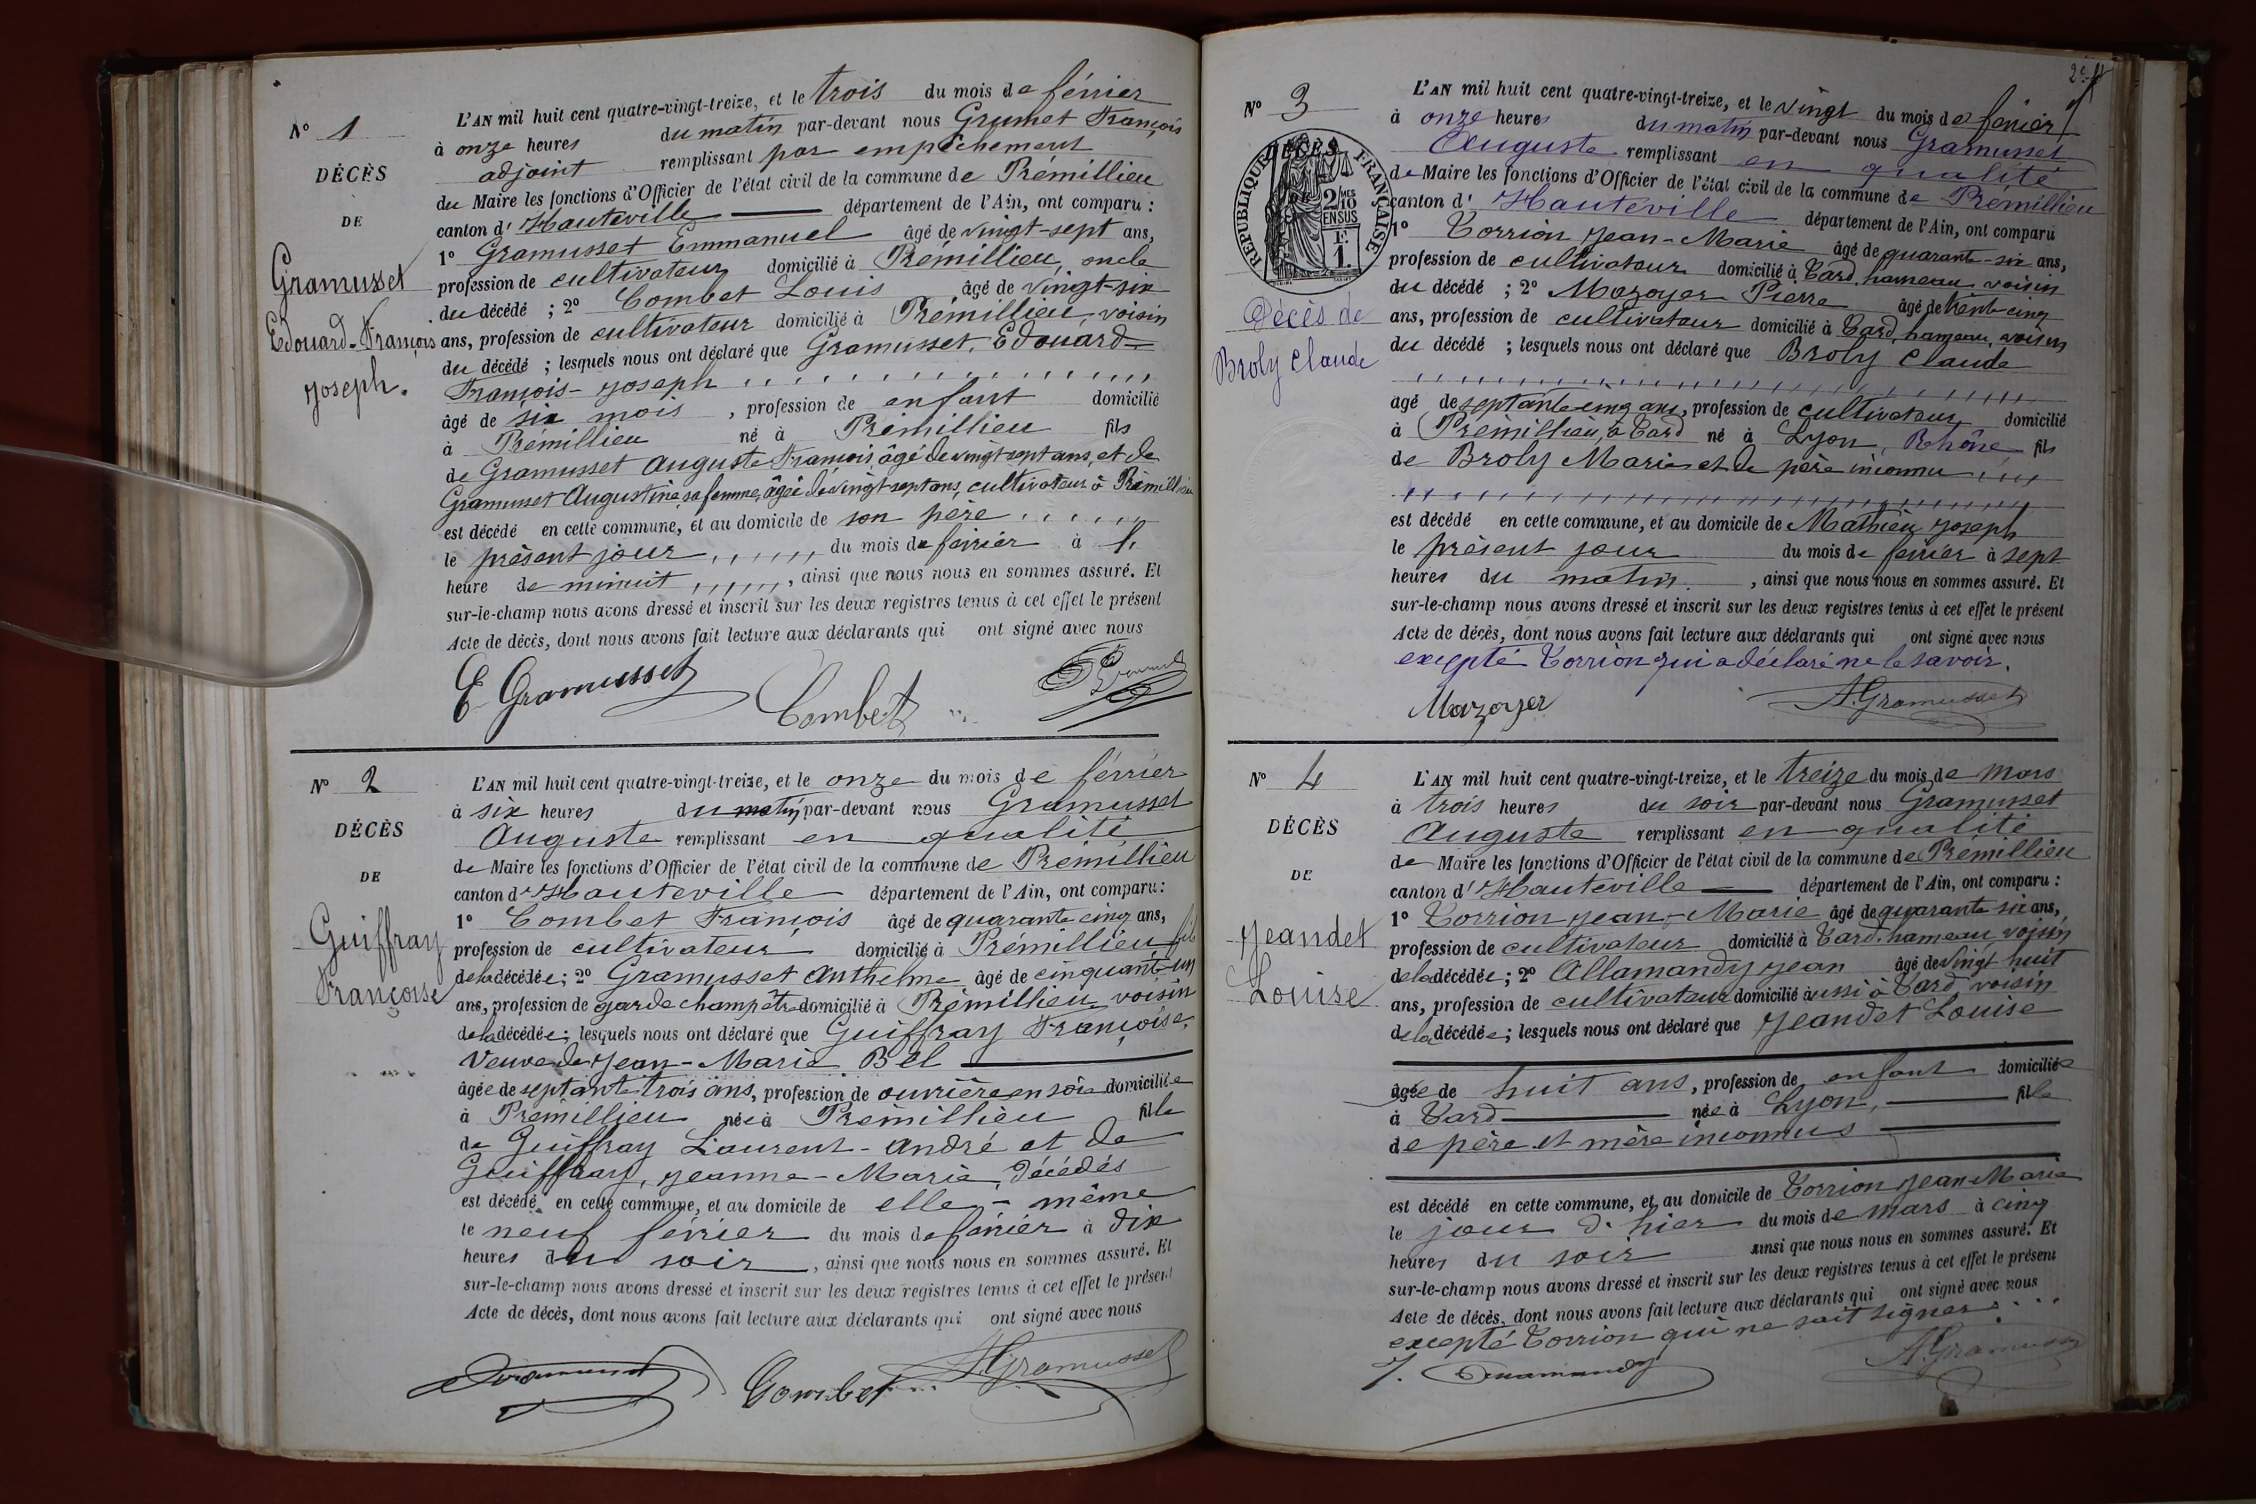 N° 1
DÉCÈS
DE
Gramusset
Edouard-François
Joseph.
L'AN mil huit cent quatre-vingt-treize, et le trois du mois de février
à onze heures du matin par-devant nous Grumet François
adjoint remplissant par empêchement
du Maire les fonctions d'Officier de l'état civil de la commune de Prémillieu
canton d'Hauteville département de l'Ain, ont comparu :
1° Gramusset Emmanuel âgé de vingt-sept ans,
profession de cultivateur domicilié à Prémillieu, oncle
du décédé ; 2° Combet Louis âgé de vingt-six
ans, profession de cultivateur domicilié à Prémillieu voisin
du décédé ; lesquels nous ont déclaré que Gramusset, Edouard-
François-Joseph
âgé de six mois, profession de enfant domicilié
à Prémillieu né à Prémillieu fils
de Gramusset Auguste François, âgé de vingt sept ans, et de
Gramusset Augustine, sa femme, âgée de vingt sept ans, cultivateur à Prémillieu
est décédé en cette commune, et au domicile de son père
le présent jour du mois de février à 1,
heure de minuit, ainsi que nous nous en sommes assuré. Et
sur-le-champ nous avons dressé et inscrit sur les deux registres tenus à cet effet le présent
Acte de décès, dont nous avons fait lecture aux déclarants qui ont signé avec nous
E Gramusset
Combet
N° 2
DÉCÈS
DE
Guiffray
Françoise
L'AN mil huit cent quatre-vingt-treize, et le onze du mois de février
à six heures du matin par-devant nous Gramusset
Auguste remplissant en qualité
de Maire les fonctions d'Officier de l'état civil de la commune de Prémillieu
canton d'Hauteville département de l'Ain, ont comparu :
1° Combet François âgé de quarante cinq ans,
profession de cultivateur domicilié à Prémillieu
de la décédée ; 2° Gramusset Anthelme âgé de cinquante un
ans, profession de garde champêtre domicilié à Prémillieu voisin
de la décédée ; lesquels nous ont déclaré que Guiffray Françoise,
Veuve de Jean-Marie Bel
âgée de septante trois ans, profession de ouvrière en soie domiciliée
à Prémillieu née à Prémillieu fille
de Guiffray Laurent-André et de
Guiffray, Jeanne-Marie, décédés
est décédée en cette commune, et au domicile de elle-même
le neuf février du mois de février à dix
heures du soir, ainsi que nous nous en sommes assuré. Et
sur-le-champ nous avons dressé et inscrit sur les deux registres tenus à cet effet le présent
Acte de décès, dont nous avons fait lecture aux déclarants qui ont signé avec nous
Combet
A. Gramusset
N° 3
RÉPUBLIQUE FRANÇAISE
DÉCÈS
DE
2/10
MES
EN SUS
Décès de
Broly Claude
L'AN mil huit cent quatre-vingt-treize, et le vingt du mois de février
à onze heures du matin par-devant nous Gramusset
Auguste remplissant en qualité
de Maire les fonctions d'Officier de l'état civil de la commune de Prémillieu
canton d'Hauteville département de l'Ain, ont comparu
1° Torrion Jean-Marie âgé de quarante-six ans,
profession de cultivateur domicilié à Tard, hameau voisin
du décédé ; 2° Mazoyer Pierre âgé de trente cinq
ans, profession de cultivateur domicilié à Tard, hameau, voisin
du décédé ; lesquels nous ont déclaré que Broly Claude
agé de septante cinq ans, profession de cultivateur domicilié
à Prémillieu, à Tard né à Lyon, Rhône fils
de Broly Marie et de père inconnu
est décédé en cette commune, et au domicile de Mathieu Joseph
le présent jour du mois de février à sept
heures du matin, ainsi que nous nous en sommes assuré. Et
sur-le-champ nous avons dressé et inscrit sur les deux registres tenus à cet effet le présent
Acte de décès, dont nous avons fait lecture aux déclarants qui ont signé avec nous
excepté Torrion qui a déclaré ne le savoir.
Mazoyer
A. Gramusset
N° 4
DÉCÈS
DE
Jeandet
Louise
L'AN mil huit cent quatre-vingt-treize, et le treize du mois de mars
à trois heures du soir par-devant nous Gramusset
Auguste remplissant en qualité
de Maire les fonctions d'Officier de l'état civil de la commune de Prémillieu
canton d'Hauteville département de l'Ain, ont comparu :
1° Torrion Jean-Marie âgé de quarante six ans,
profession de cultivateur domicilié à Tard, hameau voisin
de la décédée ; 2° Allamandy Jean âgé de vingt huit
ans, profession de cultivateur domicilié aussi à Tard voisin
de la décédée ; lesquels nous ont déclaré que Jeandet Louise
âgée de huit ans, profession de enfant domiciliée
à Tard née à Lyon, fille
de père et mère inconnus
est décédé en cette commune, et au domicile de Torrion Jean-Marie
le jour d'hier du mois de mars à cinq
heures du soir ainsi que nous nous en sommes assuré. Et
sur-le-champ nous avons dressé et inscrit sur les deux registres tenus à cet effet le présent
Acte de décès, dont nous avons fait lecture aux déclarants qui ont signé avec nous
excepté Torrion qui ne sait signer
A. Gramusset